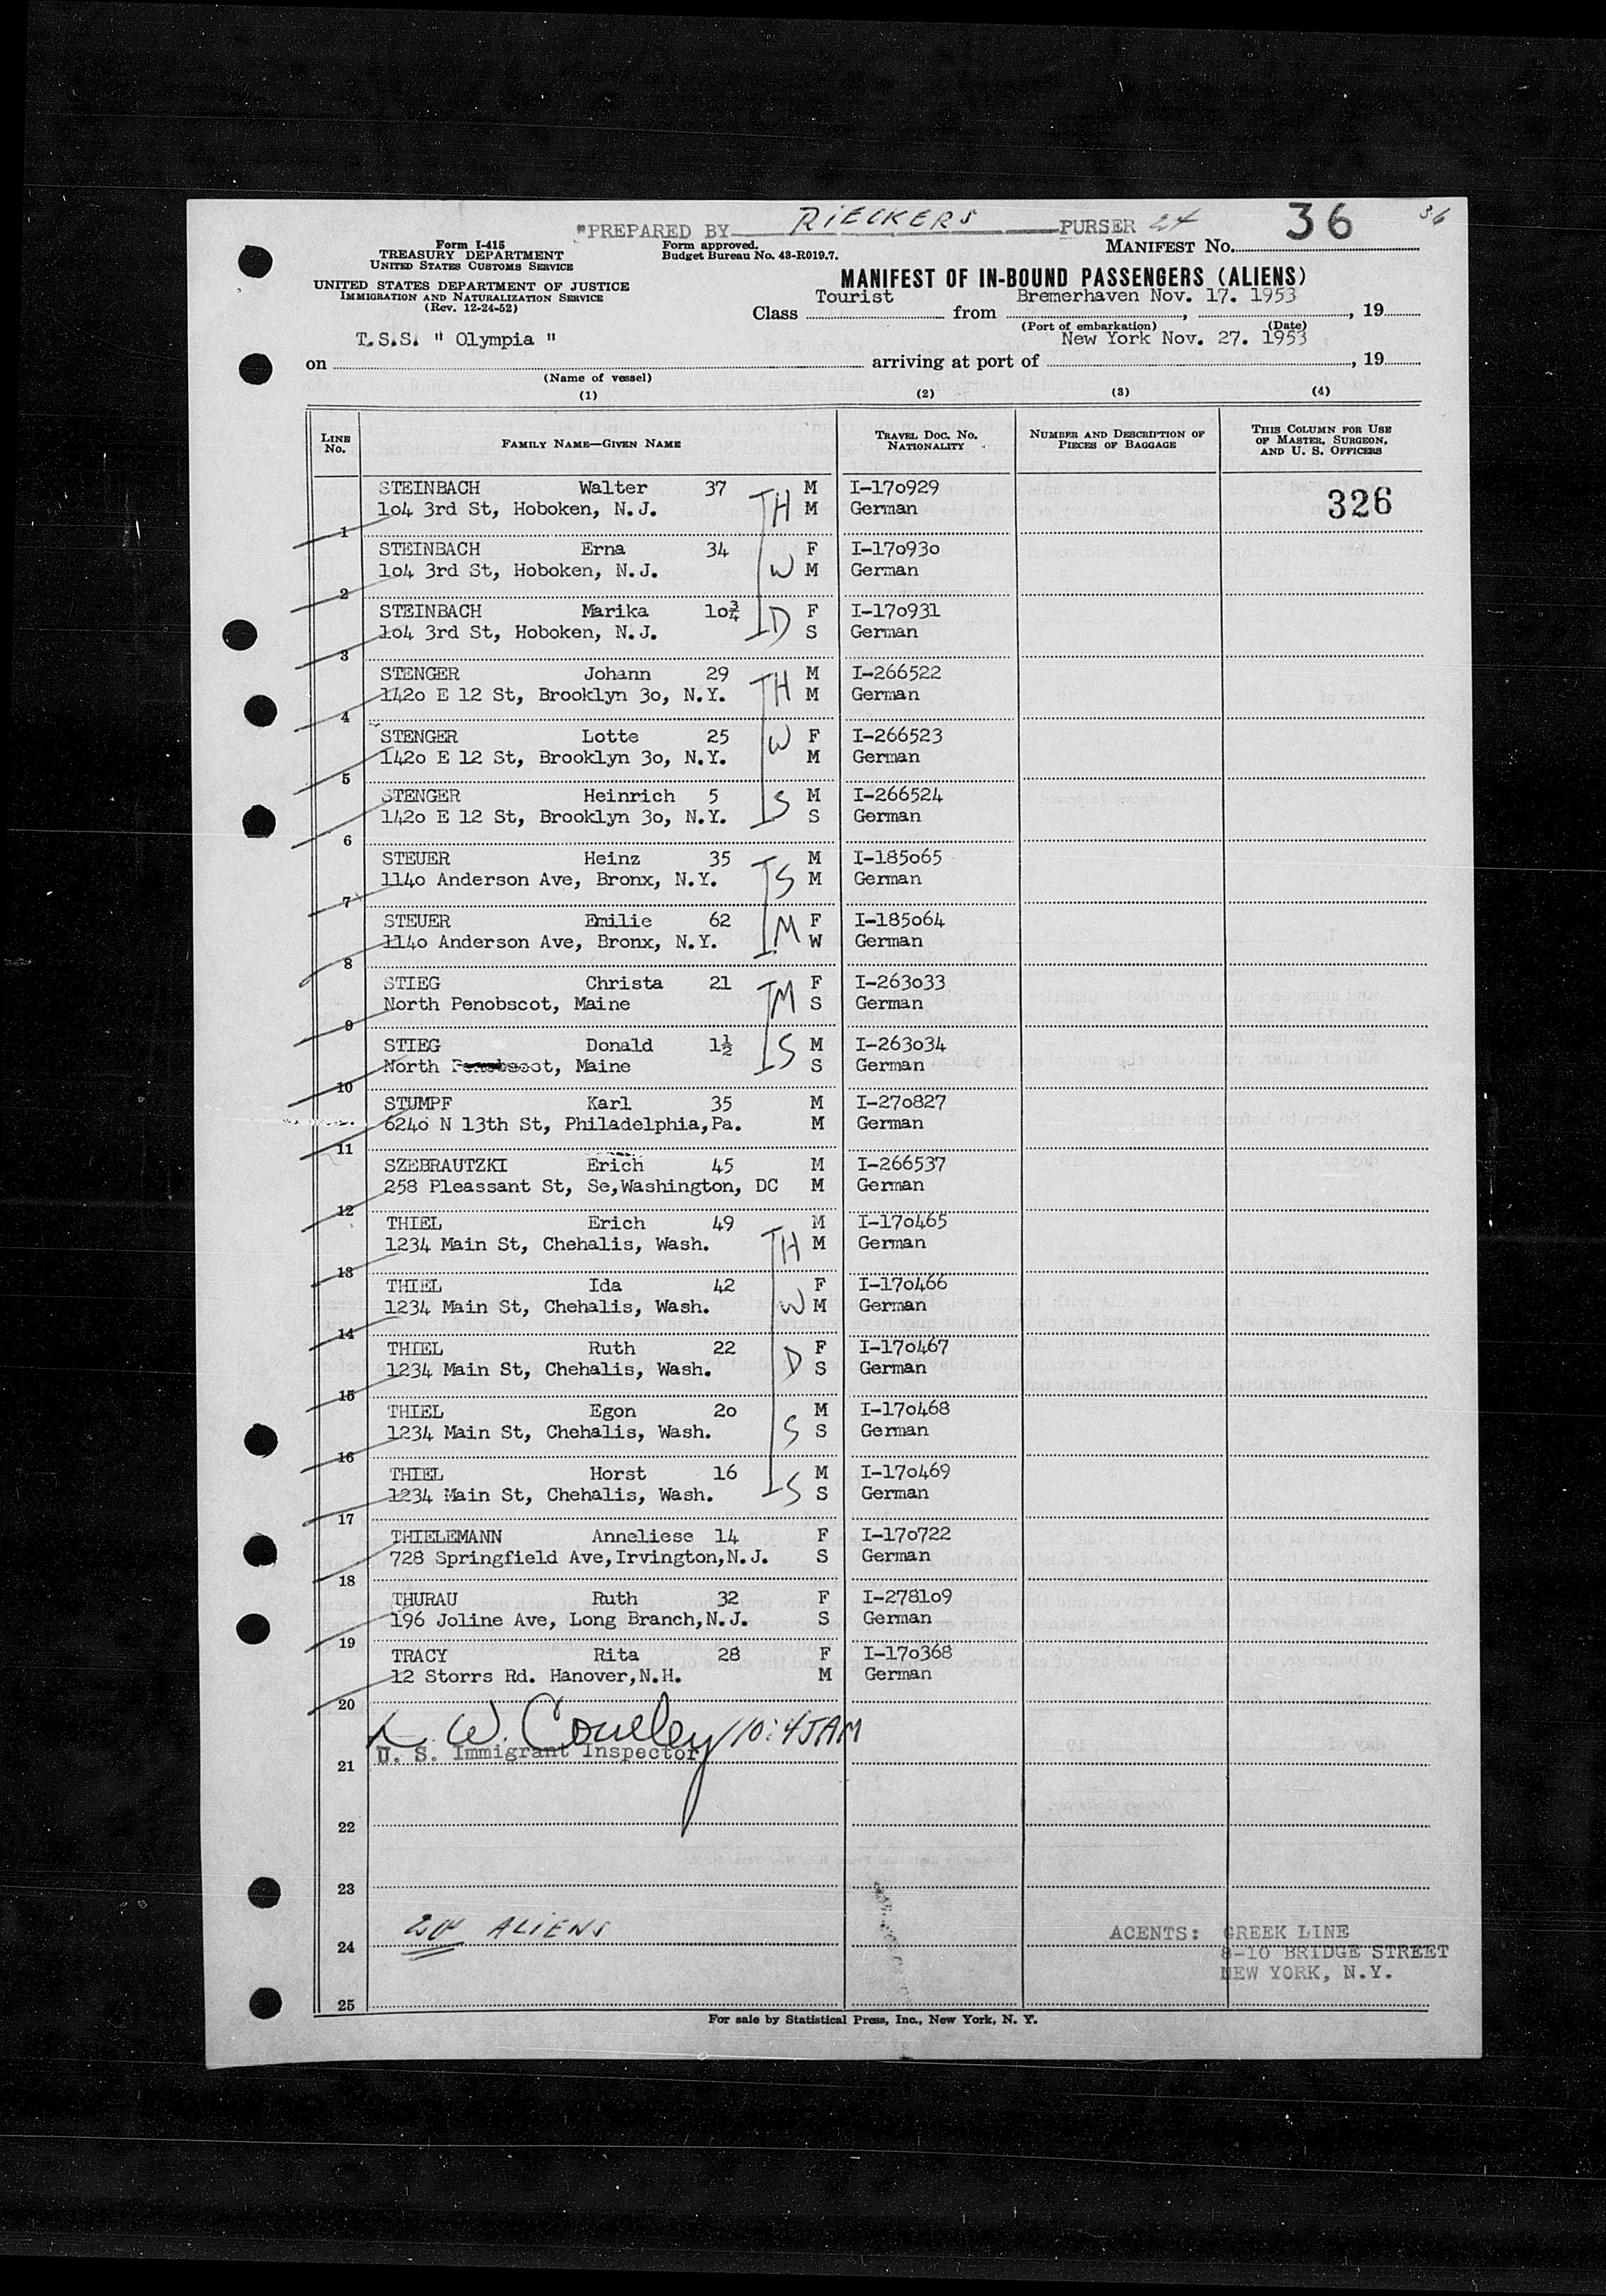 PREPARED BY RIECKERS PURSER 24 36 36
Form I-415
TREASURY DEPARTMENT
UNITED STATES CUSTOMS SERVICE
Form approved.
Budget Bureau No. 43-R019.7.
MANIFEST No.
UNITED STATES DEPARTMENT OF JUSTICE
IMMIGRATION AND NATURALIZATION SERVICE
(Rev. 12-24-52)
MANIFEST OF IN-BOUND PASSENGERS (ALIENS)
Tourist Bremerhaven Nov. 17. 1953
Class from , , 19
(Port of embarkation) (Date)
T.S.S. " Olympia " New York Nov. 27. 1953
on arriving at port of , 19
(Name of vessel)
(1) (2) (3) (4)
LINE No. FAMILY NAME—GIVEN NAME TRAVEL DOC. No. NATIONALITY NUMBER AND DESCRIPTION OF PIECES OF BAGGAGE THIS COLUMN FOR USE OF MASTER, SURGEON, AND U. S. OFFICERS
STEINBACH Walter 37 M I-17o929
1o4 3rd St, Hoboken, N.J. H M German 326
1
STEINBACH Erna 34 F I-17o93o
1o4 3rd St, Hoboken, N.J. W M German
2
STEINBACH Marika 1o¾ F I-17o931
1o4 3rd St, Hoboken, N.J. D S German
3
STENGER Johann 29 M I-266522
142o E 12 St, Brooklyn 3o, N.Y. H M German
4
STENGER Lotte 25 F I-266523
142o E 12 St, Brooklyn 3o, N.Y. W M German
5
STENGER Heinrich 5 M I-266524
142o E 12 St, Brooklyn 3o, N.Y. S S German
6
STEUER Heinz 35 M I-185o65
114o Anderson Ave, Bronx, N.Y. S M German
7
STEUER Emilie 62 F I-185o64
114o Anderson Ave, Bronx, N.Y. M W German
8
STIEG Christa 21 F I-263o33
North Penobscot, Maine M S German
9
STIEG Donald 1½ M I-263o34
North Penobscot, Maine S S German
10
STUMPF Karl 35 M I-27o827
624o N 13th St, Philadelphia,Pa. M German
11
SZEBRAUTZKI Erich 45 M I-266537
258 Pleassant St, Se,Washington, DC M German
12
THIEL Erich 49 M I-17o465
1234 Main St, Chehalis, Wash. H M German
13
THIEL Ida 42 F I-17o466
1234 Main St, Chehalis, Wash. W M German
14
THIEL Ruth 22 F I-17o467
1234 Main St, Chehalis, Wash. D S German
15
THIEL Egon 2o M I-17o468
1234 Main St, Chehalis, Wash. S S German
16
THIEL Horst 16 M I-17o469
1234 Main St, Chehalis, Wash. S S German
17
THIELEMANN Anneliese 14 F I-17o722
728 Springfield Ave,Irvington,N.J. S German
18
THURAU Ruth 32 F I-2781o9
196 Joline Ave, Long Branch,N.J. S German
19
TRACY Rita 28 F I-17o368
12 Storrs Rd. Hanover,N.H. M German
20
W. 10:45AM
U. S. Immigrant Inspector
21
22
23
ALIENS
24
AGENTS: GREEK LINE
8-10 BRIDGE STREET
NEW YORK, N.Y.
25
For sale by Statistical Press, Inc., New York, N. Y.